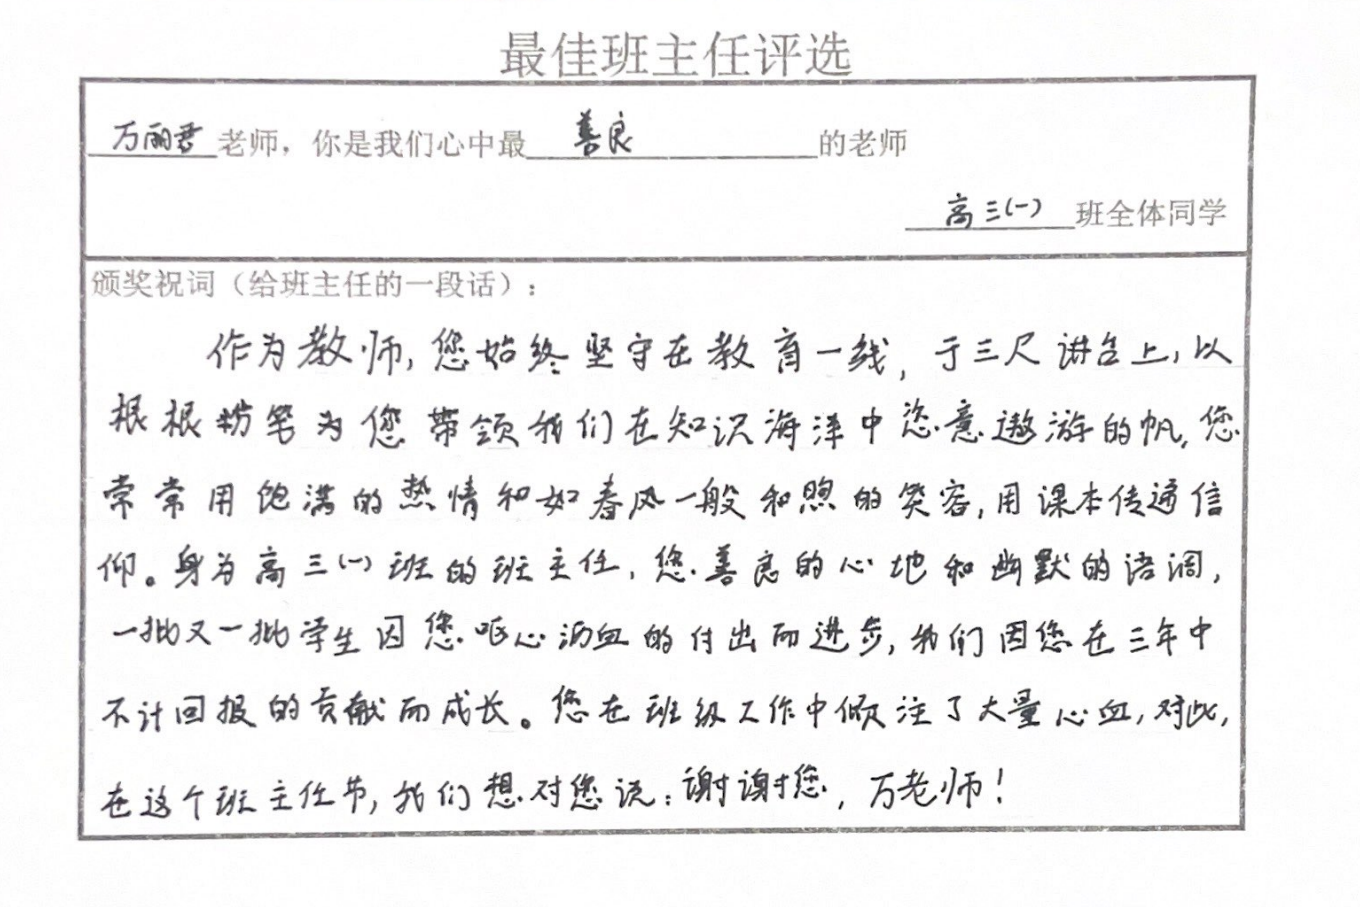 最佳班主任评选
万丽君老师，你是我们心中最善良的老师
高三(一)班全体同学
颁奖祝词（给班主任的一段话）：
作为教师,您始终坚守在教育一线,于三尺讲台上,以
根根粉笔为您带领我们在知识海洋中恣意遨游的帆,您
常常用饱满的热情和如春风一般和煦的笑容,用课本传递信
仰。身为高三(一)班的班主任,您善良的心地和幽默的语调,
一批又一批学生因您呕心沥血的付出而进步,我们因您在三年中
不计回报的贡献而成长。您在班级工作中倾注了大量心血,对此,
在这个班主任节,我们想对您说:谢谢您,万老师!